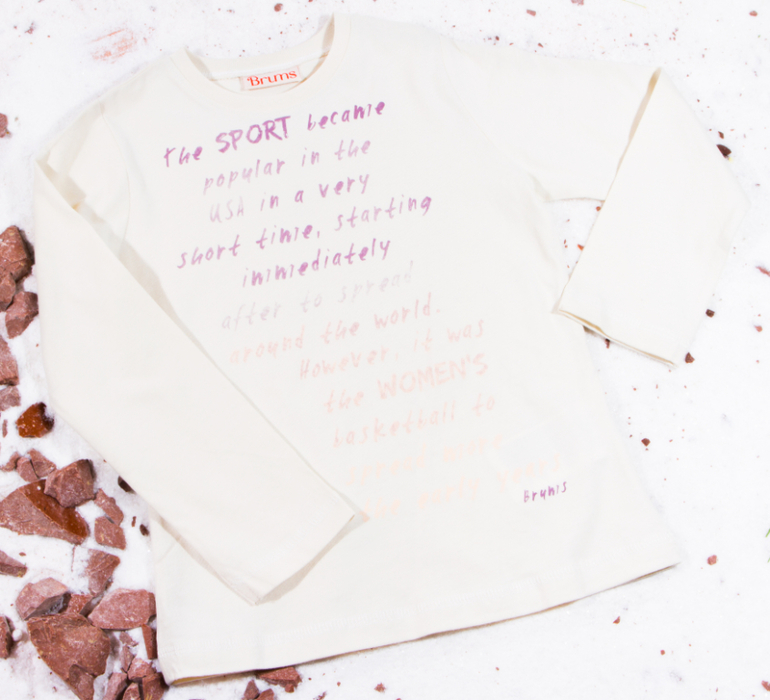 Brums
the SPORT became
popular in the
USA in a very
short time, starting
immediately
after to spread
around the world.
However, it was
the WOMEN'S
basketball to
spread more
the early years
Brums